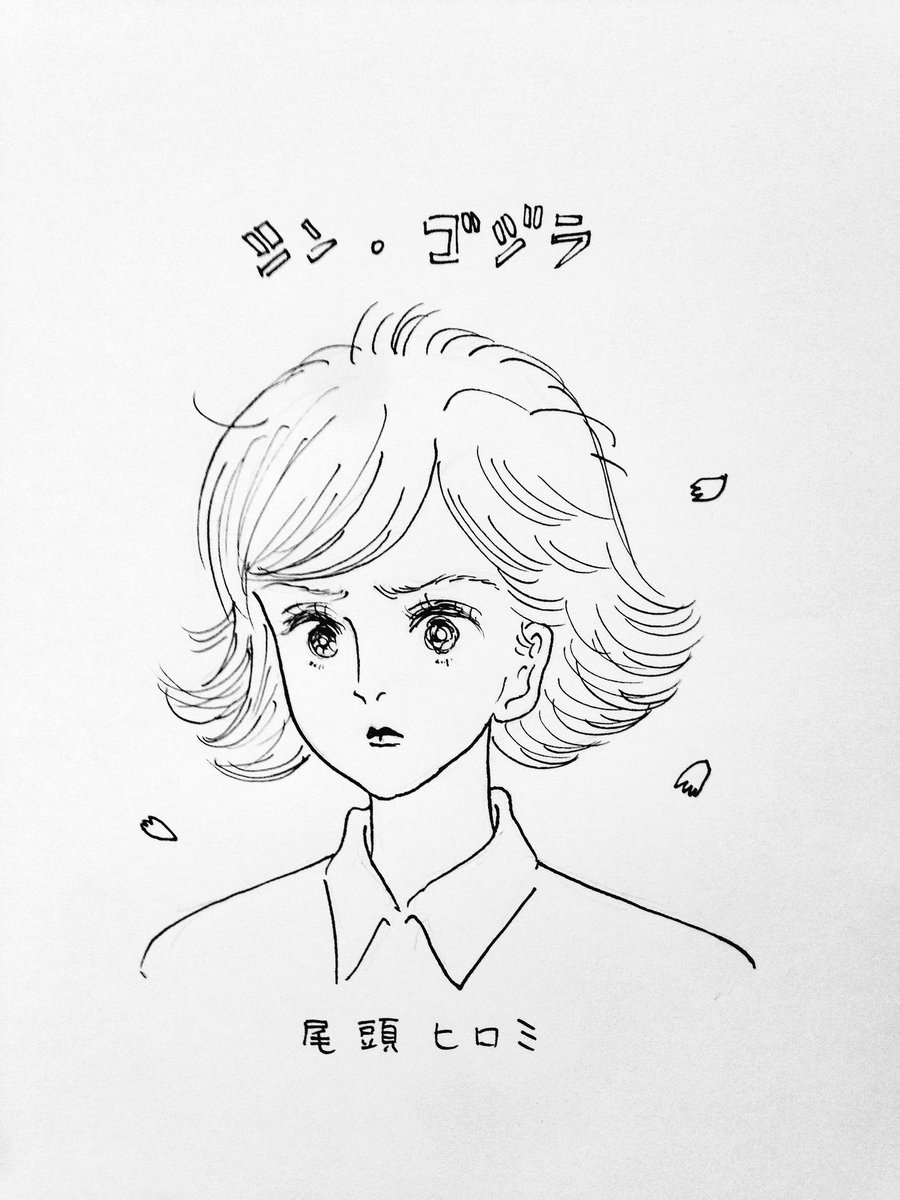 シン・ゴジラ
尾頭ヒロミ